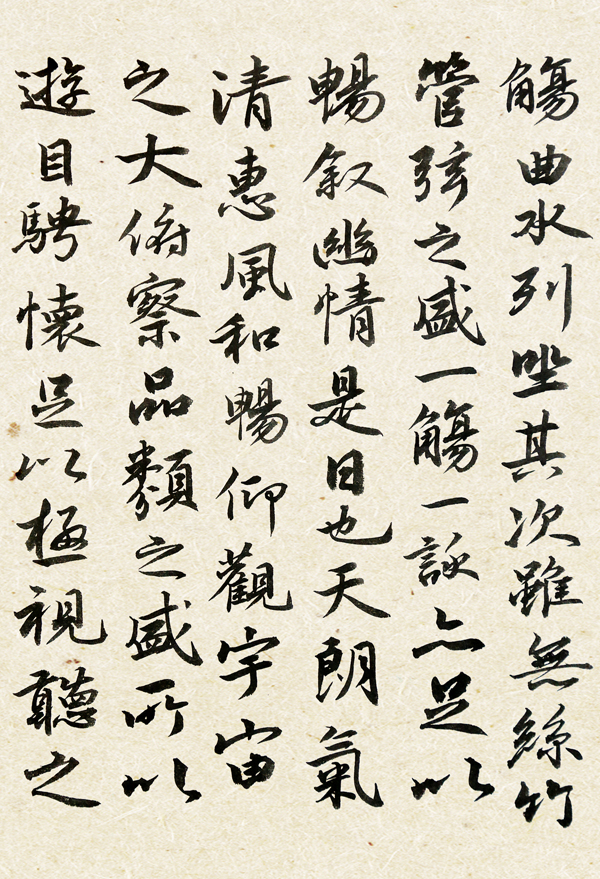 觴曲水列坐其次雖無絲竹
管弦之盛一觴一詠亦足以
暢叙幽情是日也天朗氣
清惠風和暢仰觀宇宙
之大俯察品類之盛所以
遊目騁懷足以極視聽之